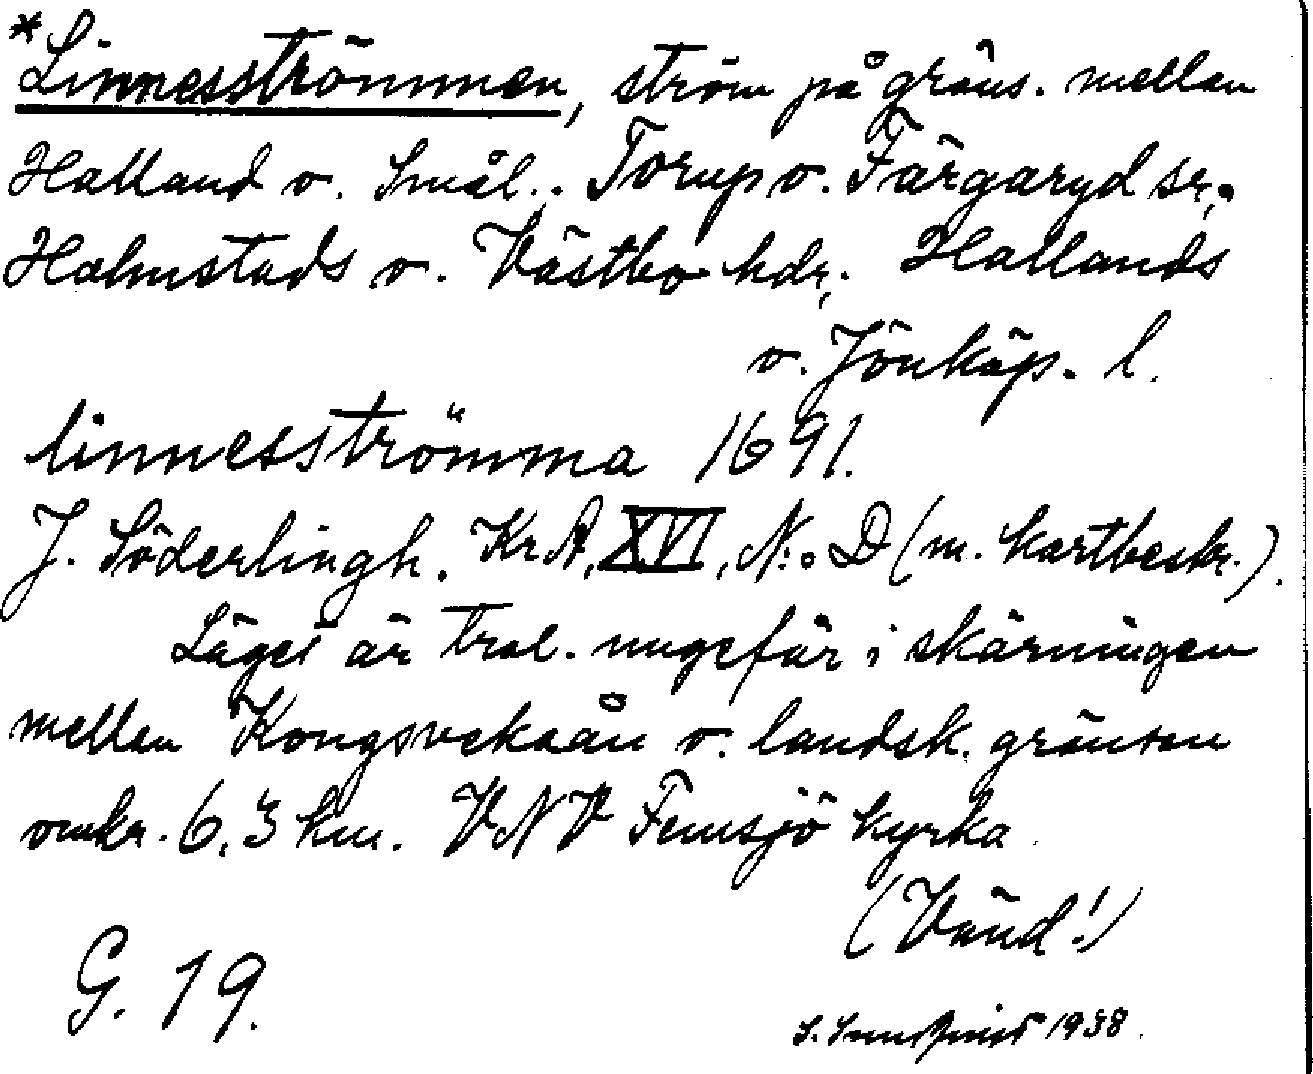 *Linnesströmmen, ström på gräns. mellan
Halland o. Smål.. Torup o. Färgaryd sr.
Halmstads o. Västbo hdr. Hallands
o. Jönköp. l.
linnesströmma 1691.
J. Söderlingh. KrA, XVI, N:o D (m. kartbeskr.).
Läget är trol. ungefär i skärningen
mellan Kongsveksån o. landsk. gränsen
omkr. 6,3 km. VNV Femsjö kyrka.
(Vänd!)
G. 19.
S. Sundqvist 1938.